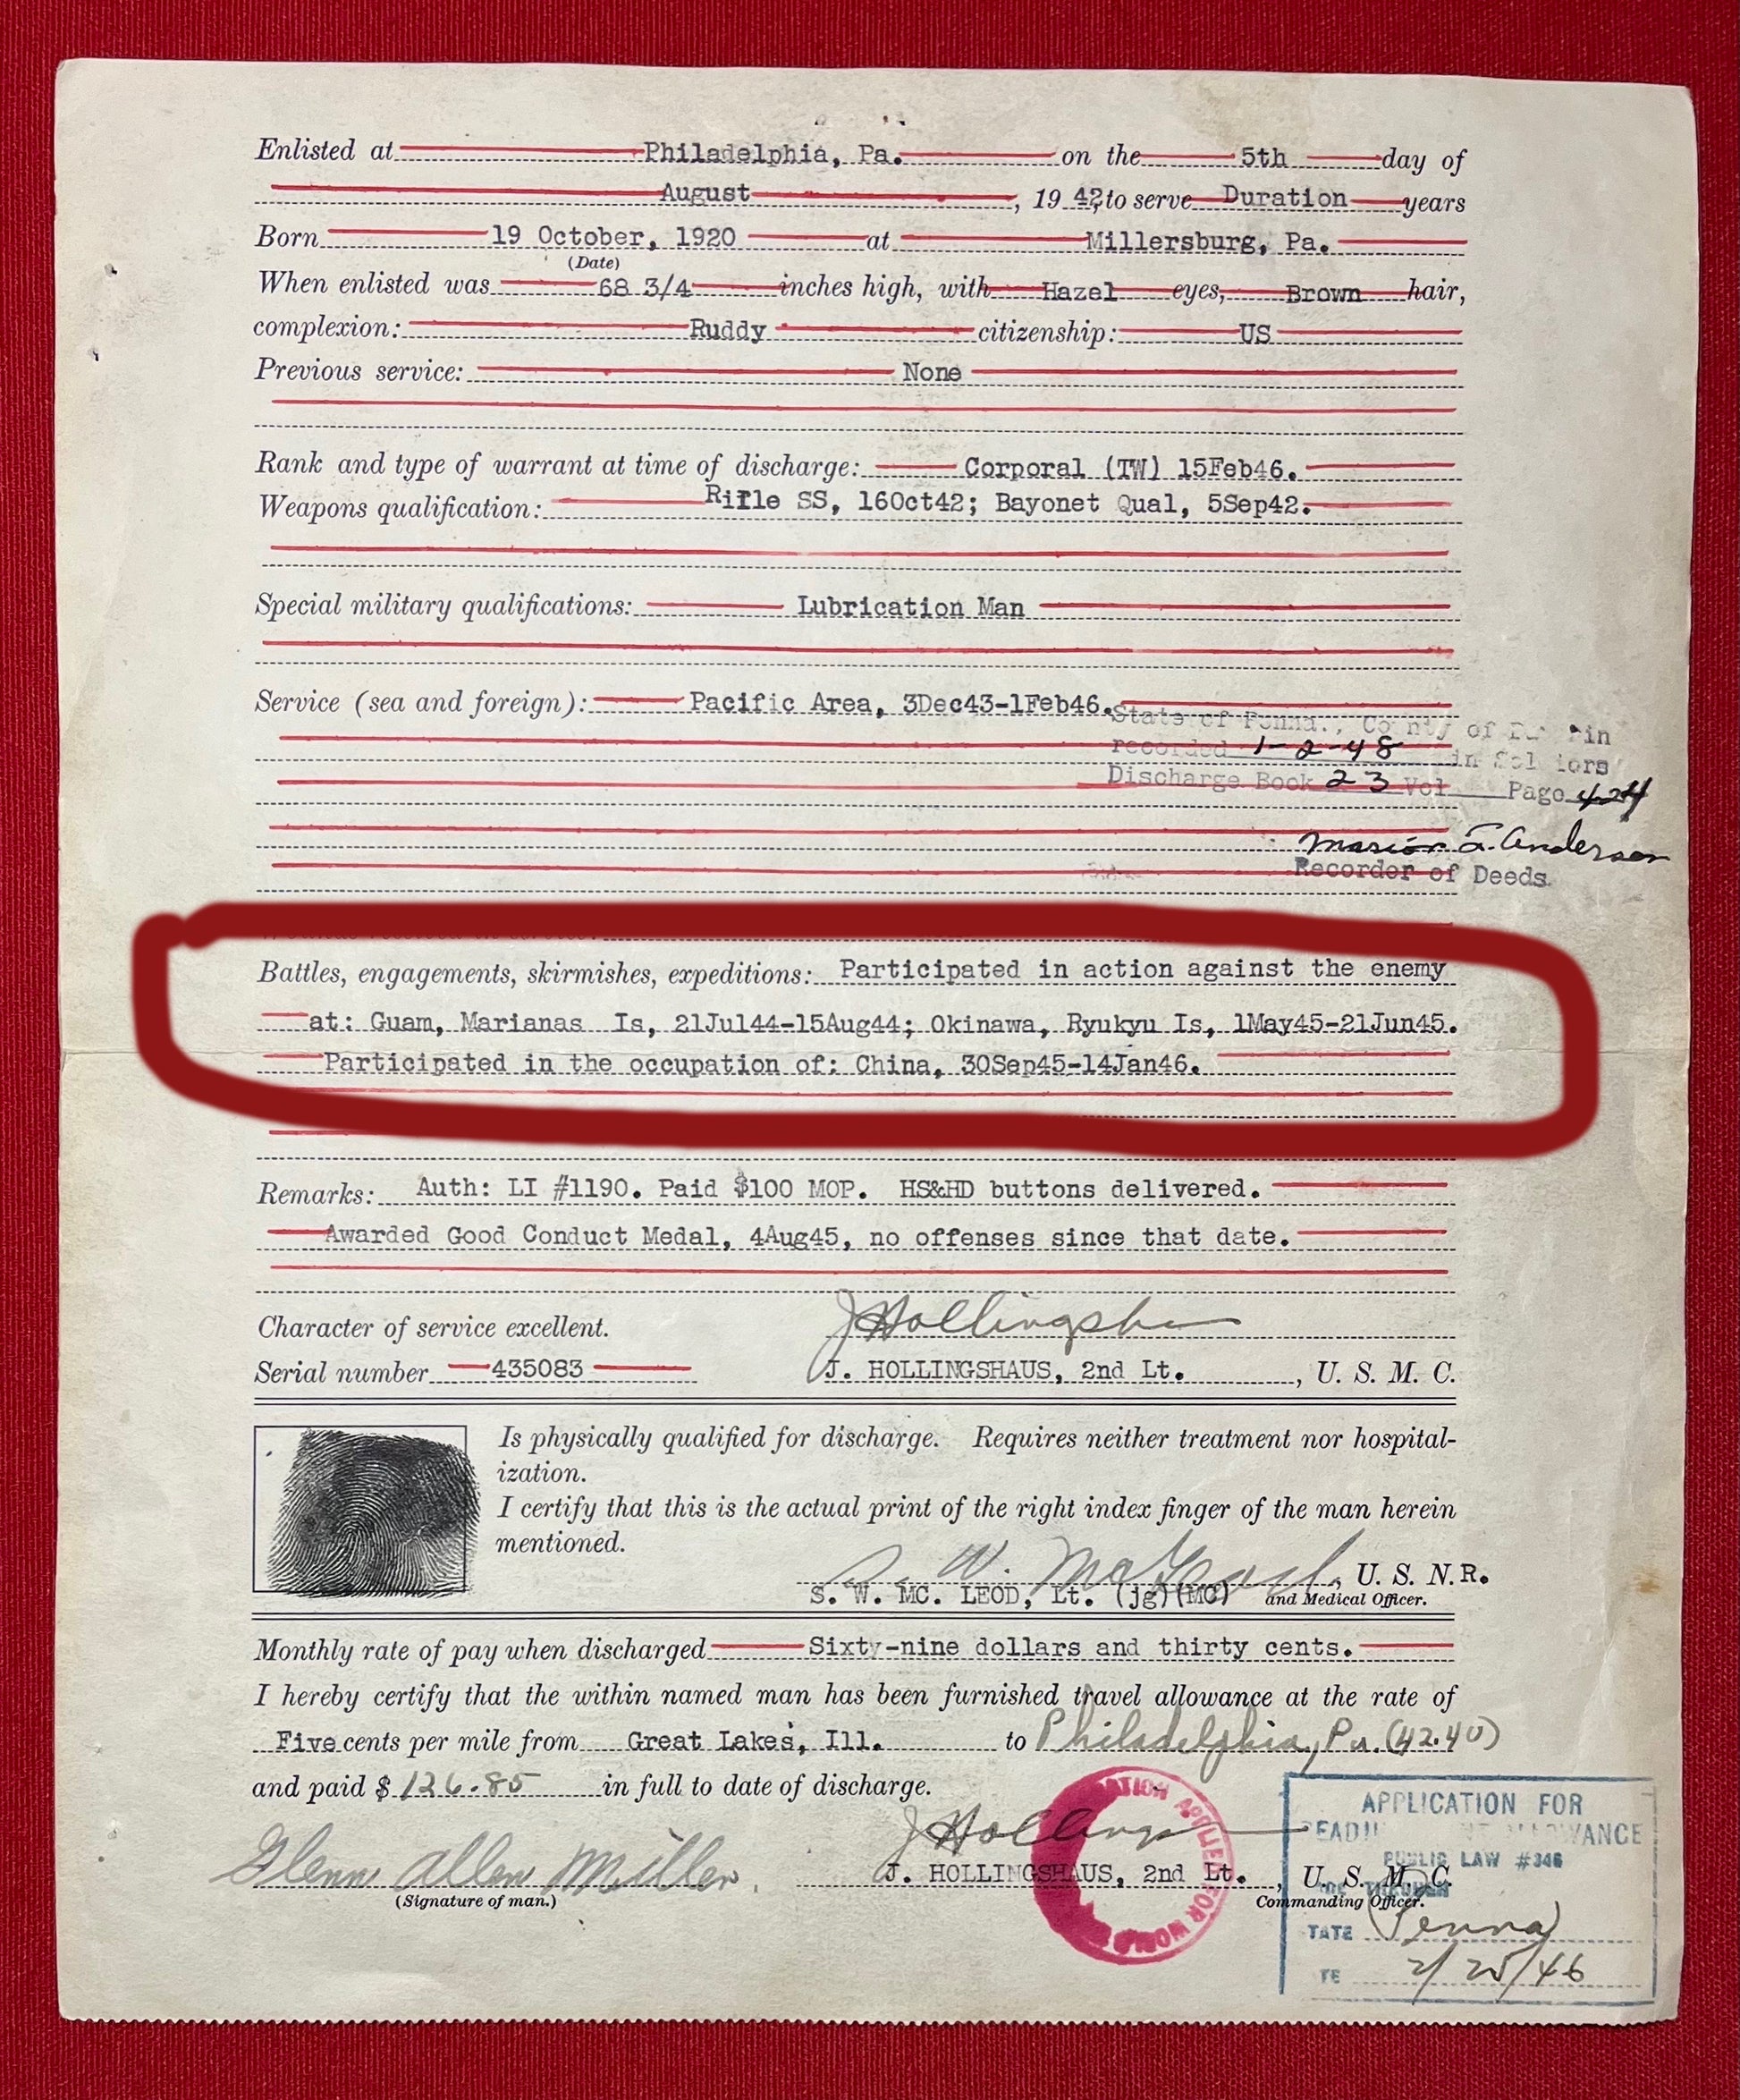 Enlisted at Philadelphia, Pa. on the 5th day of
August, 19 42, to serve Duration years
Born 19 October, 1920 at Millersburg, Pa.
(Date)
When enlisted was 68 3/4 inches high, with Hazel eyes, Brown hair,
complexion: Ruddy citizenship: US
Previous service: None
Rank and type of warrant at time of discharge: Corporal (TW) 15Feb46.
Weapons qualification: Rifle SS, 16Oct42; Bayonet Qual, 5Sep42.
Special military qualifications: Lubrication Man
Service (sea and foreign): Pacific Area, 3Dec43-1Feb46.
State of Penna., County of
recorded 1-2-48 in
Discharge Book 23 Vol Page 424
Marion E. Anderson
Recorder of Deeds
Battles, engagements, skirmishes, expeditions: Participated in action against the enemy
at: Guam, Marianas Is, 21Jul44-15Aug44; Okinawa, Ryukyu Is, 1May45-21Jun45.
Participated in the occupation of: China, 30Sep45-14Jan46.
Remarks: Auth: LI #1190. Paid $100 MOP. HS&HD buttons delivered.
Awarded Good Conduct Medal, 4Aug45, no offenses since that date.
Character of service excellent.
Serial number 435083 J. HOLLINGSHAUS, 2nd Lt., U. S. M. C.
Is physically qualified for discharge. Requires neither treatment nor hospital-
ization.
I certify that this is the actual print of the right index finger of the man herein
mentioned.
S. W. MC. LEOD, Lt. (jg)(MC), U. S. N.R.
and Medical Officer.
Monthly rate of pay when discharged Sixty-nine dollars and thirty cents.
I hereby certify that the within named man has been furnished travel allowance at the rate of
Five cents per mile from Great Lakes, Ill. to Philadelphia, Pa. (42.40)
and paid $ 126.85 in full to date of discharge.
Glenn Allen Miller
J. HOLLINGSHAUS, 2nd Lt., U. S. M. C.
(Signature of man.) Commanding Officer.
APPLIED FOR WORLD
APPLICATION FOR
PUBLIC LAW #346
THROUGH
TATE Penna
TE 2/25/46